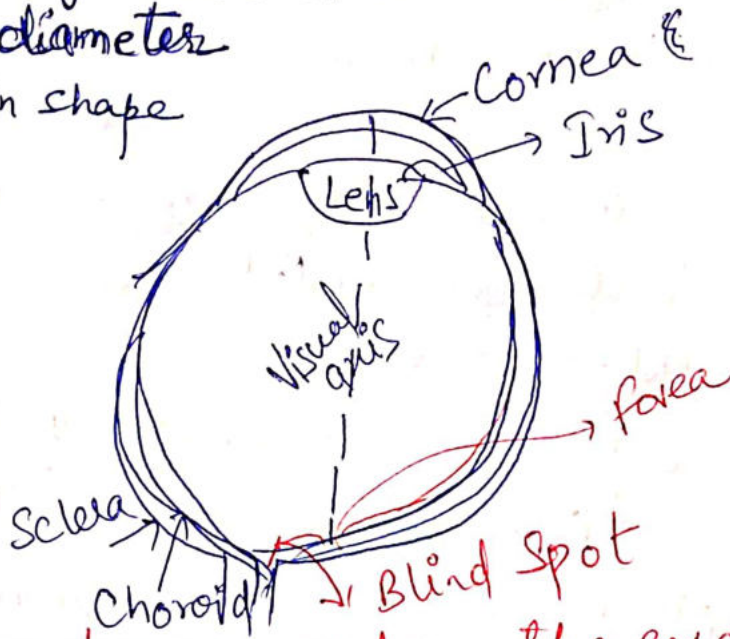 diameter
n shape
Cornea &
Iris
Lens
Visual
axis
fovea
Sclera
Choroid
Blind Spot